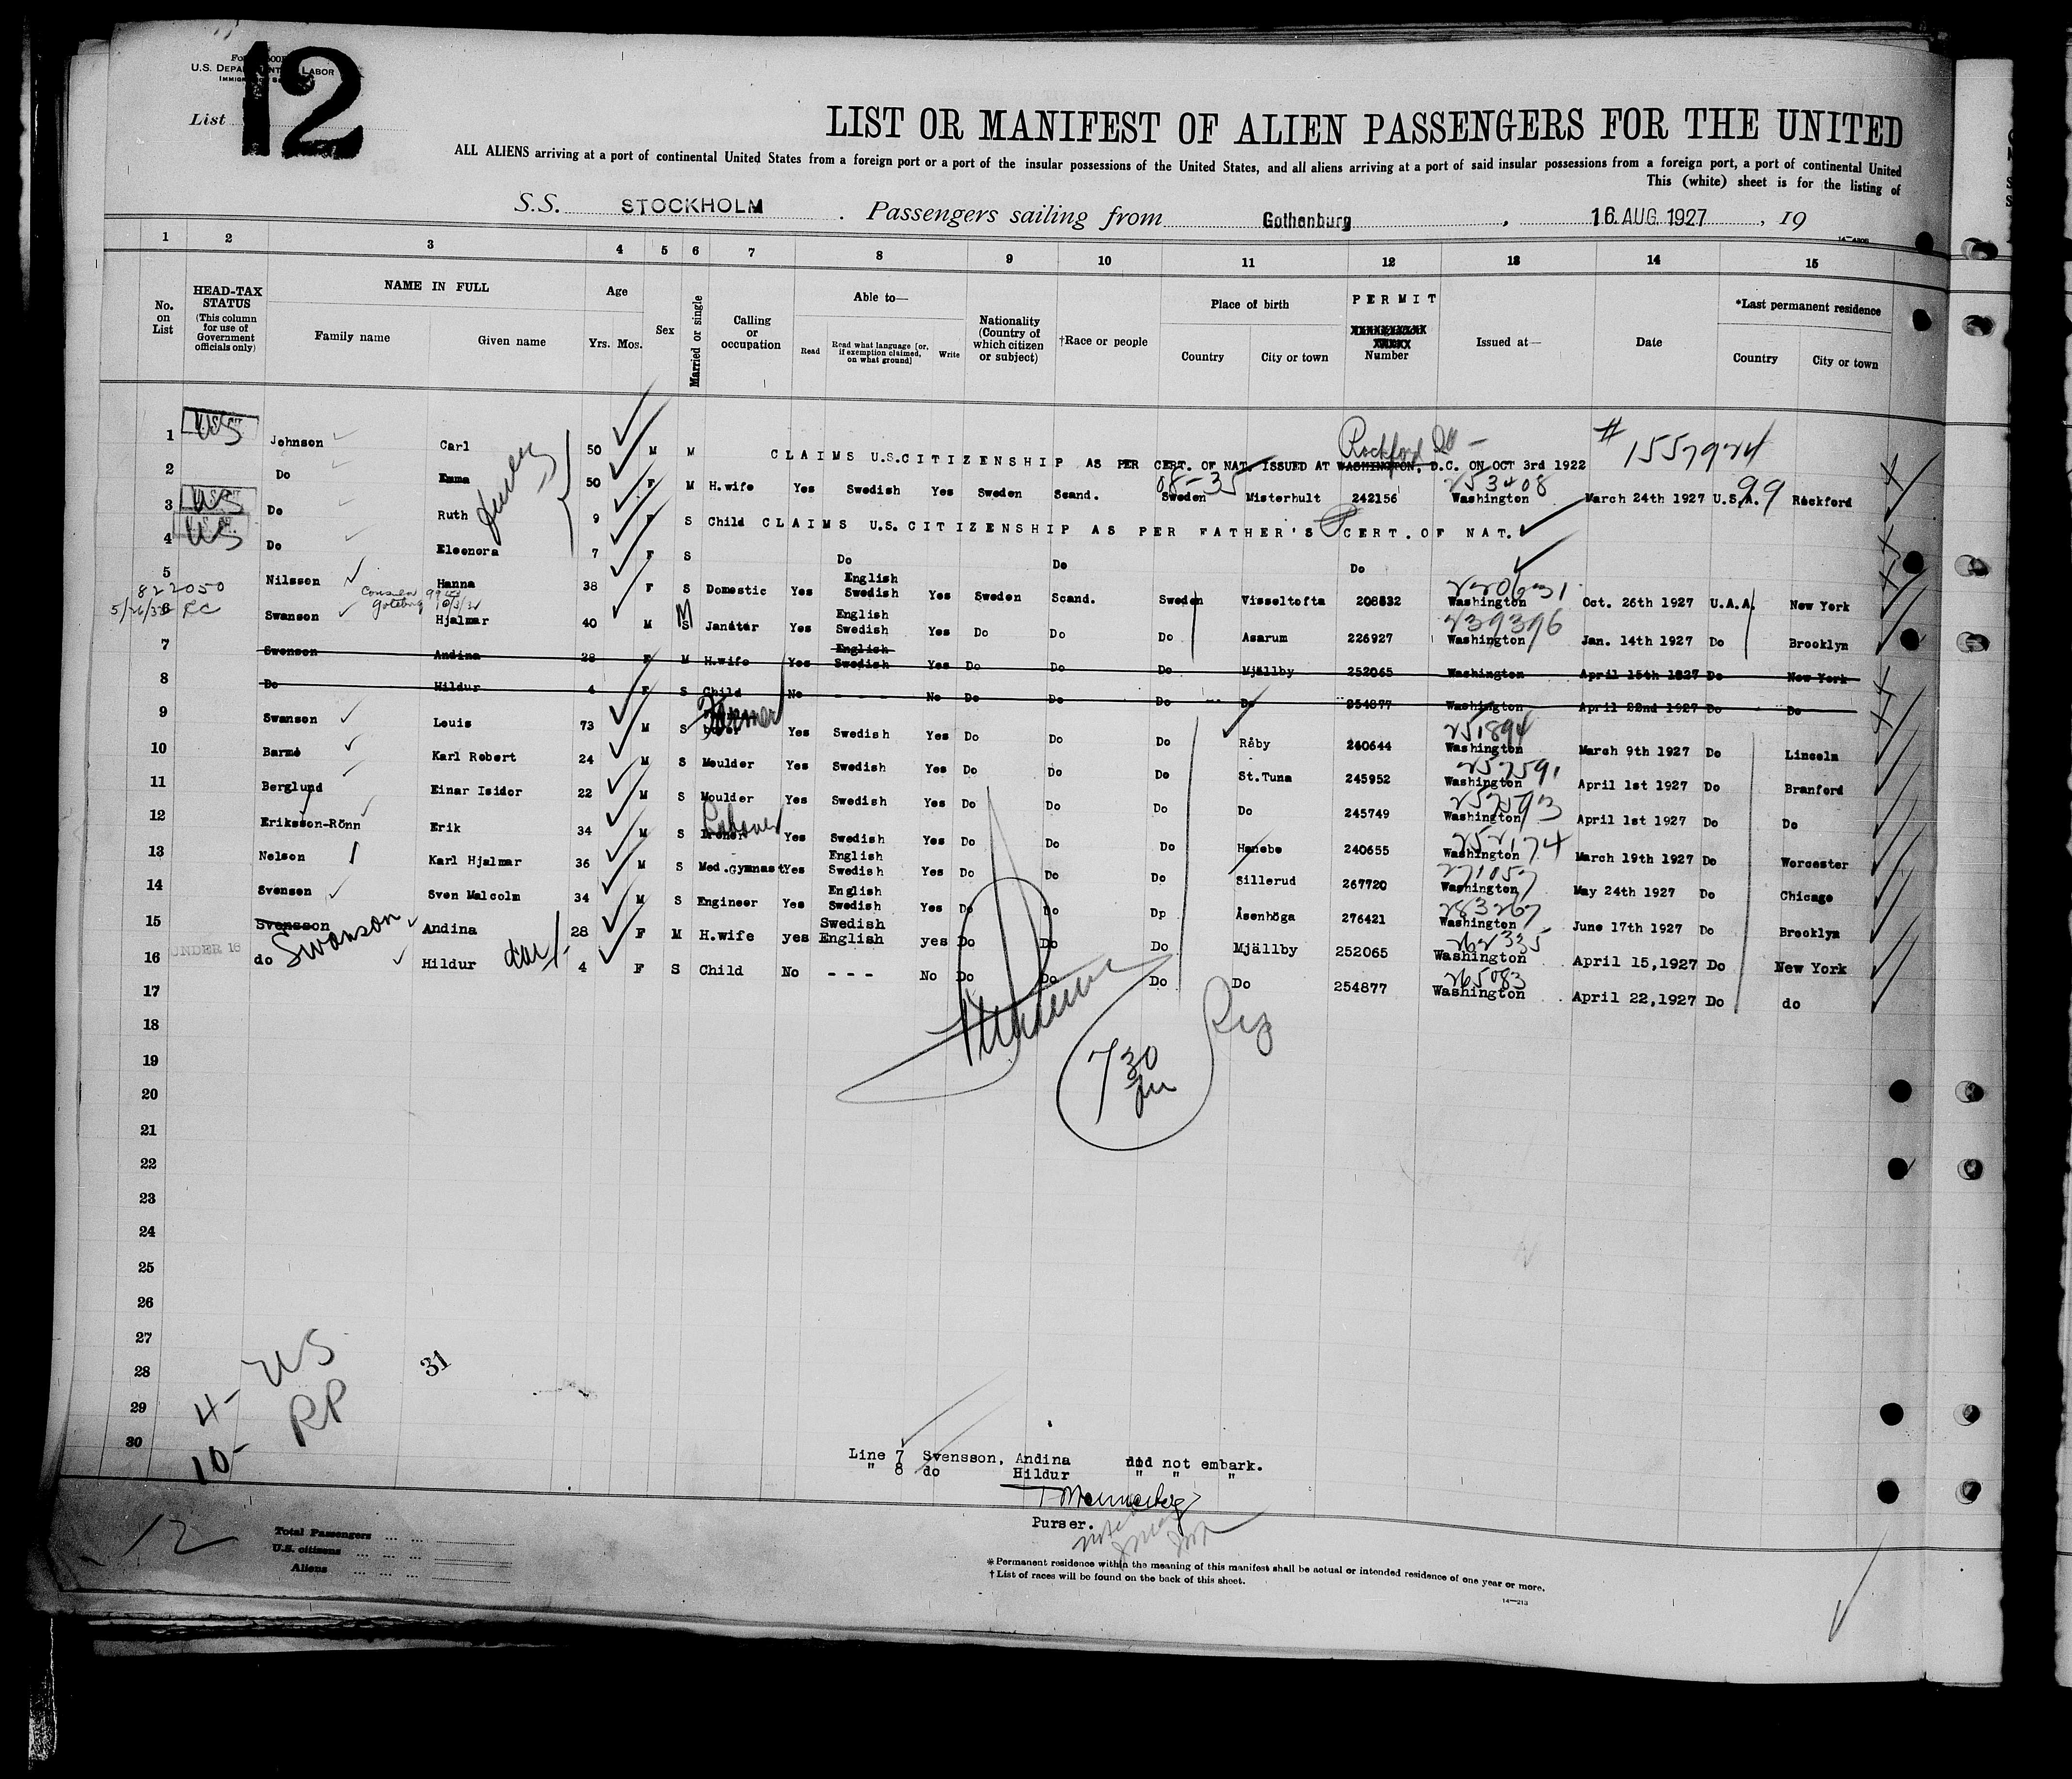 12
U.S. DEPARTMENT LABOR
List
LIST OR MANIFEST OF ALIEN PASSENGERS FOR THE UNITED
ALL ALIENS arriving at a port of continental United States from a foreign port or a port of the insular possessions of the United States, and all aliens arriving at a port of said insular possessions from a foreign port, a port of continental United
This (white) sheet is for the listing of
S.S. STOCKHOLM . Passengers sailing from Gothenburg , 16. AUG. 1927 , 19
1 2 3 4 5 6 7 8 9 10 11 12 13 14 15
No. on List
HEAD-TAX STATUS (This column for use of Government officials only)
NAME IN FULL
Family name Given name
Age
Yrs. Mos.
Sex
Married or single
Calling or occupation
Able to—
Read Read what language [or, if exemption claimed, on what ground] Write
Nationality (Country of which citizen or subject)
†Race or people
Place of birth
Country City or town
PERMIT
Number
Issued at—
Date
*Last permanent residence
Country City or town
1 US Johnson Carl 50 M M CLAIMS U.S.CITIZENSHIP AS PER CERT. OF NAT. ISSUED AT WASHINGTON, D.C. ON OCT 3rd 1922 Rockford # 1557924
2 Do Emma 50 F M H.wife Yes Swedish Yes Sweden Scand. 08-35 Sweden Misterhult 242156 253408 Washington March 24th 1927 U.S.A. 99 Rockford
3 US Do Ruth 9 F S Child CLAIMS U.S. CITIZENSHIP AS PER FATHER'S CERT. OF NAT.
4 US Do Eleonora 7 F S Do Do Do
5 Nilsson Hanna 38 F S Domestic Yes English Swedish Yes Sweden Scand. Sweden Visseltofta 208832 220631 Washington Oct. 26th 1927 U.A.A. New York
822050
6 Swanson Hjalmar 40 M S M Janitar Yes English Swedish Yes Do Do Do Asarum 226927 239396 Washington Jan. 14th 1927 Do Brooklyn
7 Swenson Andina 28 F M H.wife Yes English Swedish Yes Do Do Do Mjällby 252065 Washington April 15th 1927 Do New York
8 Do Hildur 4 F S Child No - - - - No Do Do Do Do 254877 Washington April 22nd 1927 Do Do
9 Swanson Louis 73 M S Farmer Yes Swedish Yes Do Do Do Råby 240644 251894 Washington March 9th 1927 Do Lincoln
10 Barmé Karl Robert 24 M S Moulder Yes Swedish Yes Do Do Do St.Tuna 245952 257591 Washington April 1st 1927 Do Branford
11 Berglund Einar Isidor 22 M S Moulder Yes Swedish Yes Do Do Do Do 245749 257593 Washington April 1st 1927 Do Do
12 Eriksson-Rönn Erik 34 M S Laborer Yes Swedish Yes Do Do Do Hanebo 240655 252174 Washington March 19th 1927 Do Worcester
13 Nelson Karl Hjalmar 36 M S Med.Gymnast Yes English Swedish Yes Do Do Do Sillerud 267720 271057 Washington May 24th 1927 Do Chicago
14 Svenson Sven Malcolm 34 M S Engineer Yes English Swedish Yes Do Do Dp Åsenhöga 276421 283267 Washington June 17th 1927 Do Brooklyn
15 Svensson Swanson Andina 28 F M H.wife yes Swedish English yes Do Do Do Mjällby 252065 262335 Washington April 15,1927 Do New York
16 UNDER 16 do Hildur 4 F S Child No - - - No Do Do Do Do 254877 265083 Washington April 22,1927 Do do
17
18
19
7 30
20
21
22
23
24
25
26
27
28
29
30
31
4- US
10- RP
Line 7 Svensson, Andina did not embark.
" 8 do Hildur " " "
Purser.
12
Total Passengers
U.S. citizens
Aliens
* Permanent residence within the meaning of this manifest shall be actual or intended residence of one year or more.
† List of races will be found on the back of this sheet.
14—213